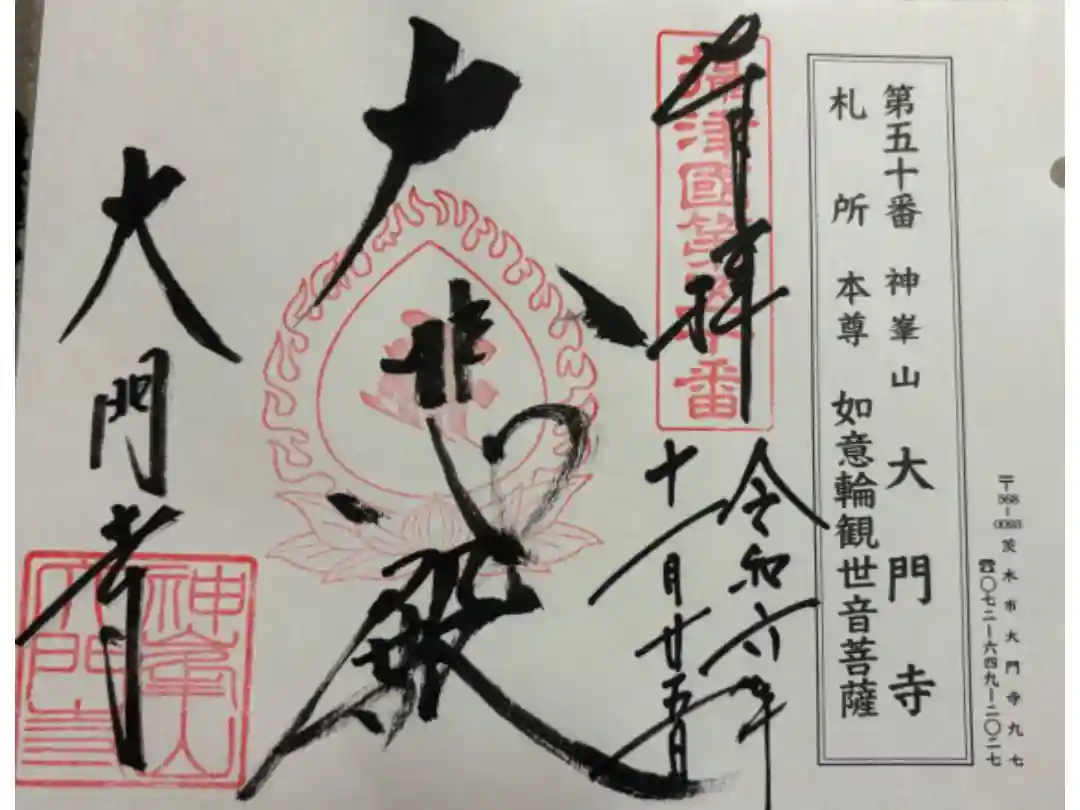 〒568-0093 茨木市大門寺九七
☎〇七二-六四九-二〇二七
第五十番 神峯山 大門寺
札所 本尊 如意輪観世音菩薩
奉拝
攝津國第五十番
令和六年
十一月廿五日
大悲殿
大門寺
神峯山
大門寺